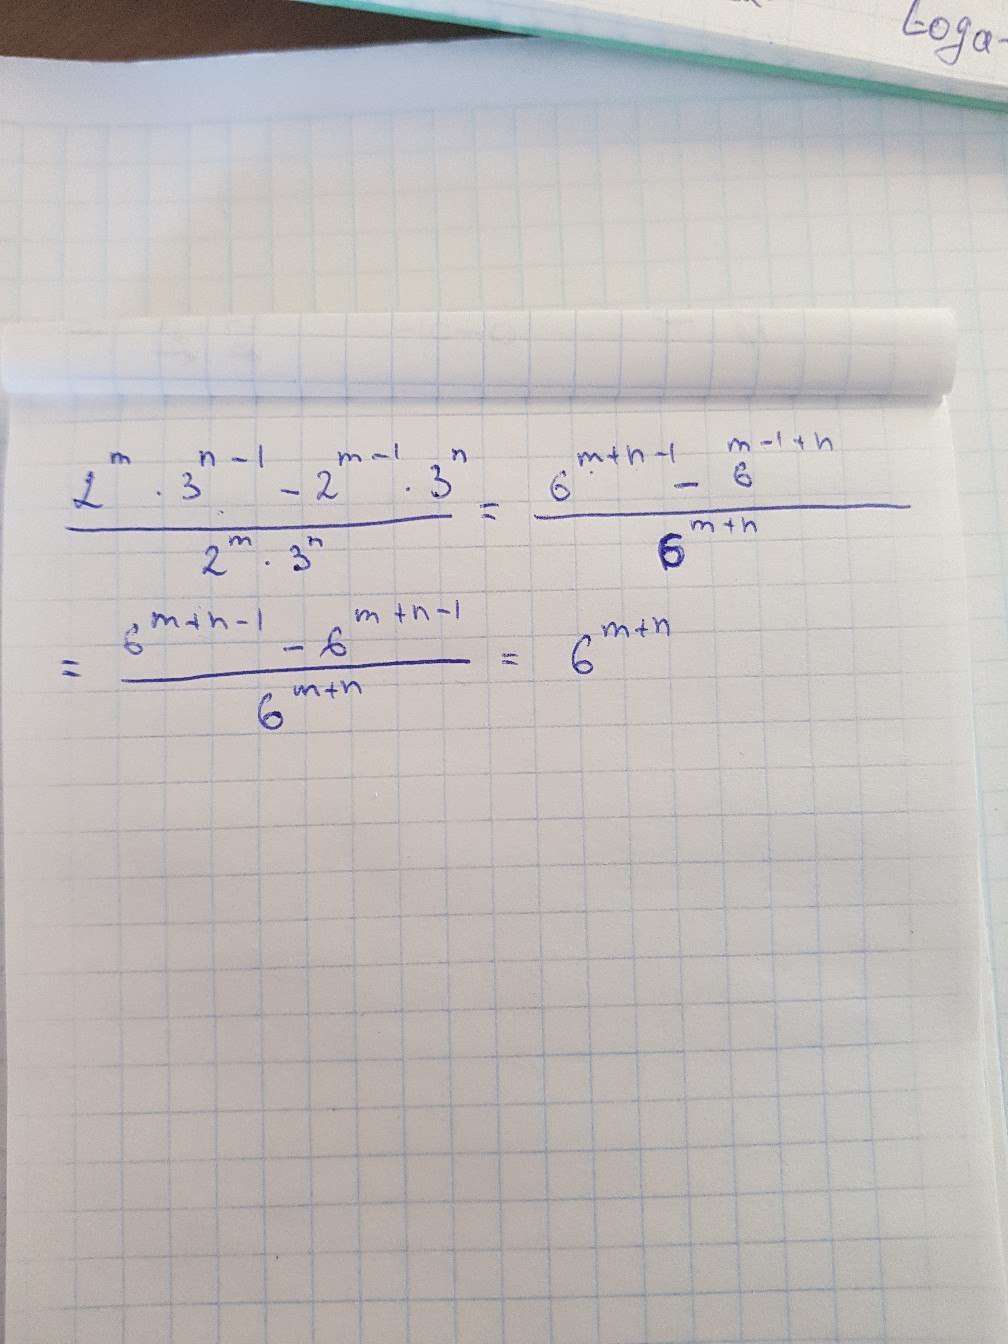 Loga-
2^m · 3^(n-1) - 2^(m-1) · 3^n / 2^m · 3^n = 6^(m+n-1) - 6^(m-1+n) / 6^(m+n)
= 6^(m+n-1) - 6^(m+n-1) / 6^(m+n) = 6^(m+n)